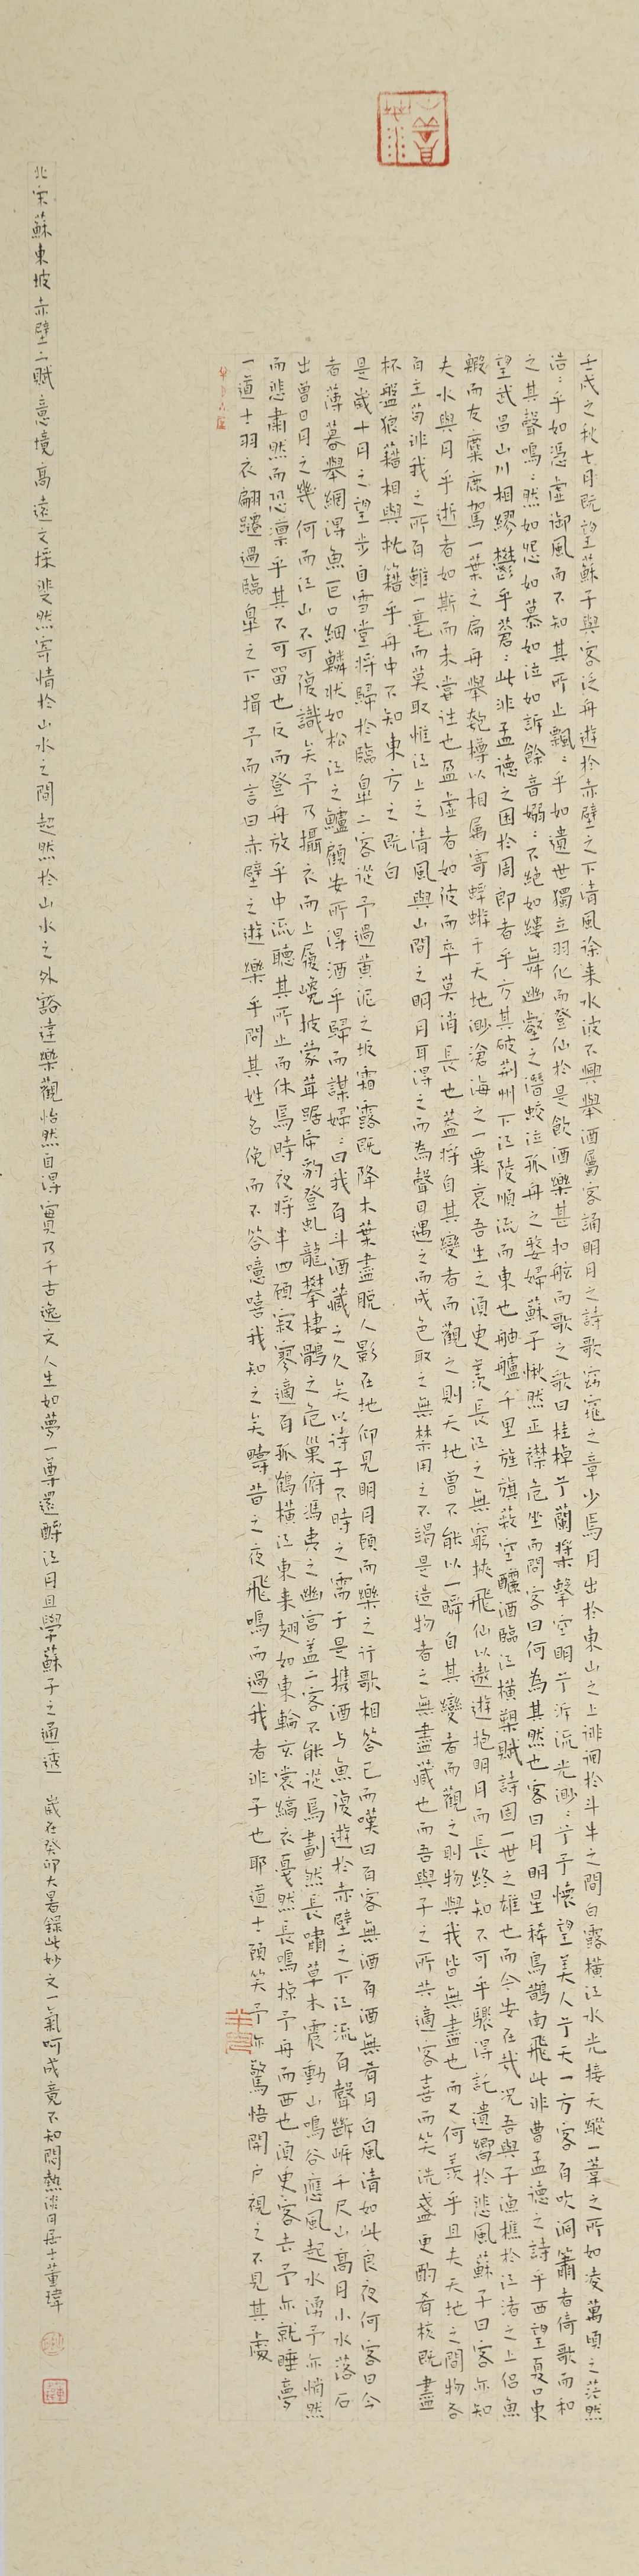 壬戌之秋七月既望蘇子與客泛舟遊於赤壁之下清風徐来水波不興舉酒屬客誦明月之詩歌窈窕之章少焉月出於東山之上徘徊於斗牛之間白露橫江水光接天縱一葦之所如凌萬頃之茫然
浩：乎如憑虛御風而不知其所止飄：乎如遺世獨立羽化而登仙於是飲酒樂甚扣舷而歌之歌曰桂棹兮蘭槳擊空明兮泝流光渺：兮予懷望美人兮天一方客有吹洞簫者倚歌而和
之其聲鳴：然如怨如慕如泣如訴餘音嫋：不絕如縷舞幽壑之潛蛟泣孤舟之嫠婦蘇子愀然正襟危坐而問客曰何為其然也客曰月明星稀烏鵲南飛此非曹孟德之詩乎西望夏口東
望武昌山川相繆鬱乎蒼：此非孟德之困於周郎者乎方其破荆州下江陵順流而東也舳艫千里旌旗蔽空釃酒臨江橫槊賦詩固一世之雄也而今安在哉況吾與子漁樵於江渚之上侶魚
蝦而友麋鹿駕一葉之扁舟舉匏樽以相屬寄蜉蝣于天地渺滄海之一粟哀吾生之須臾羨長江之無窮挾飛仙以遨遊抱明月而長終知不可乎驟得託遺響於悲風蘇子曰客亦知
夫水與月乎逝者如斯而未嘗往也盈虛者如彼而卒莫消長也蓋將自其變者而觀之則天地曾不能以一瞬自其變者而觀之則物與我皆無盡也而又何羨乎且夫天地之間物各
有主苟非我之所有雖一毫而莫取惟江上之清風與山間之明月耳得之而為聲目遇之而成色取之無禁用之不竭是造物者之無盡藏也而吾與子之所共適客喜而笑洗盞更酌肴核既盡
杯盤狼藉相與枕籍乎舟中不知東方之既白
是歲十月之望步自雪堂將歸於臨皋二客從予過黄泥之坂霜露既降木葉盡脫人影在地仰見明月顧而樂之行歌相答已而嘆曰有客無酒有酒無肴月白風清如此良夜何客曰今
者薄暮舉網得魚巨口細鱗狀如松江之鱸顧安所得酒乎歸而謀婦：曰我有斗酒藏之久矣以待子不時之需于是携酒与魚復遊於赤壁之下江流有聲斷岸千尺山高月小水落石
出曾日月之幾何而江山不可復識矣予乃攝衣而上履巉披蒙茸踞虎豹登虬龍攀棲鶻之危巢俯馮夷之幽宮盖二客不能從焉劃然長嘯草木震動山鳴谷應風起水湧予亦悄然
而悲肅然而恐凛乎其不可留也反而登舟放乎中流聽其所止而休焉時夜將半四顧寂寥適有孤鶴橫江東来翅如東輪玄裳縞衣戛然長鳴掠予舟而西也須臾客去予亦就睡夢
一道士羽衣翩躚過臨皋之下揖予而言曰赤壁之遊樂乎問其姓名俛而不答噫嘻我知之矣疇昔之夜飛鳴而過我者非子也耶道士顧笑予亦驚悟開戶視之不見其處
北宋蘇東坡赤壁二賦意境高遠文採斐然寄情於山水之間超然於山水之外豁達樂觀怡然自得實乃千古逸文人生如夢一尊還酹江月且學蘇子之通達 歲在癸卯大暑錄此妙文一氣呵成竟不知悶熱淡月居士董瑋